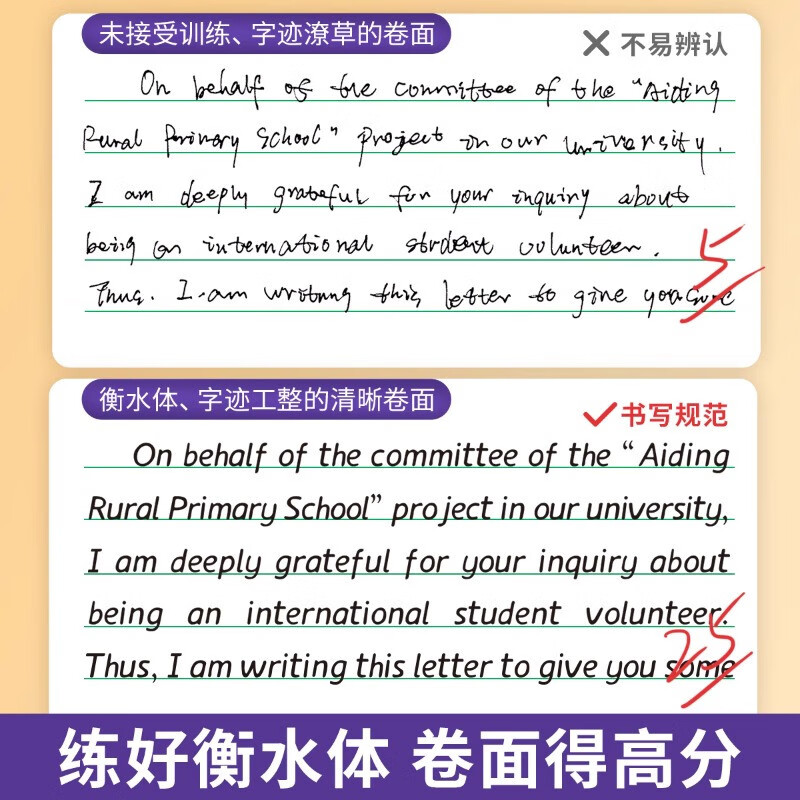 未接受训练、字迹潦草的卷面
不易辨认
On behalf of the committee of the "Aiding
Rural Primary School" project in our university.
I am deeply grateful for your inquiry about
being an international student volunteer.
Thus. I am writing this letter to give you
5
衡水体、字迹工整的清晰卷面
书写规范
On behalf of the committee of the “Aiding
Rural Primary School” project in our university,
I am deeply grateful for your inquiry about
being an international student volunteer.
Thus, I am writing this letter to give you some
25
练好衡水体 卷面得高分